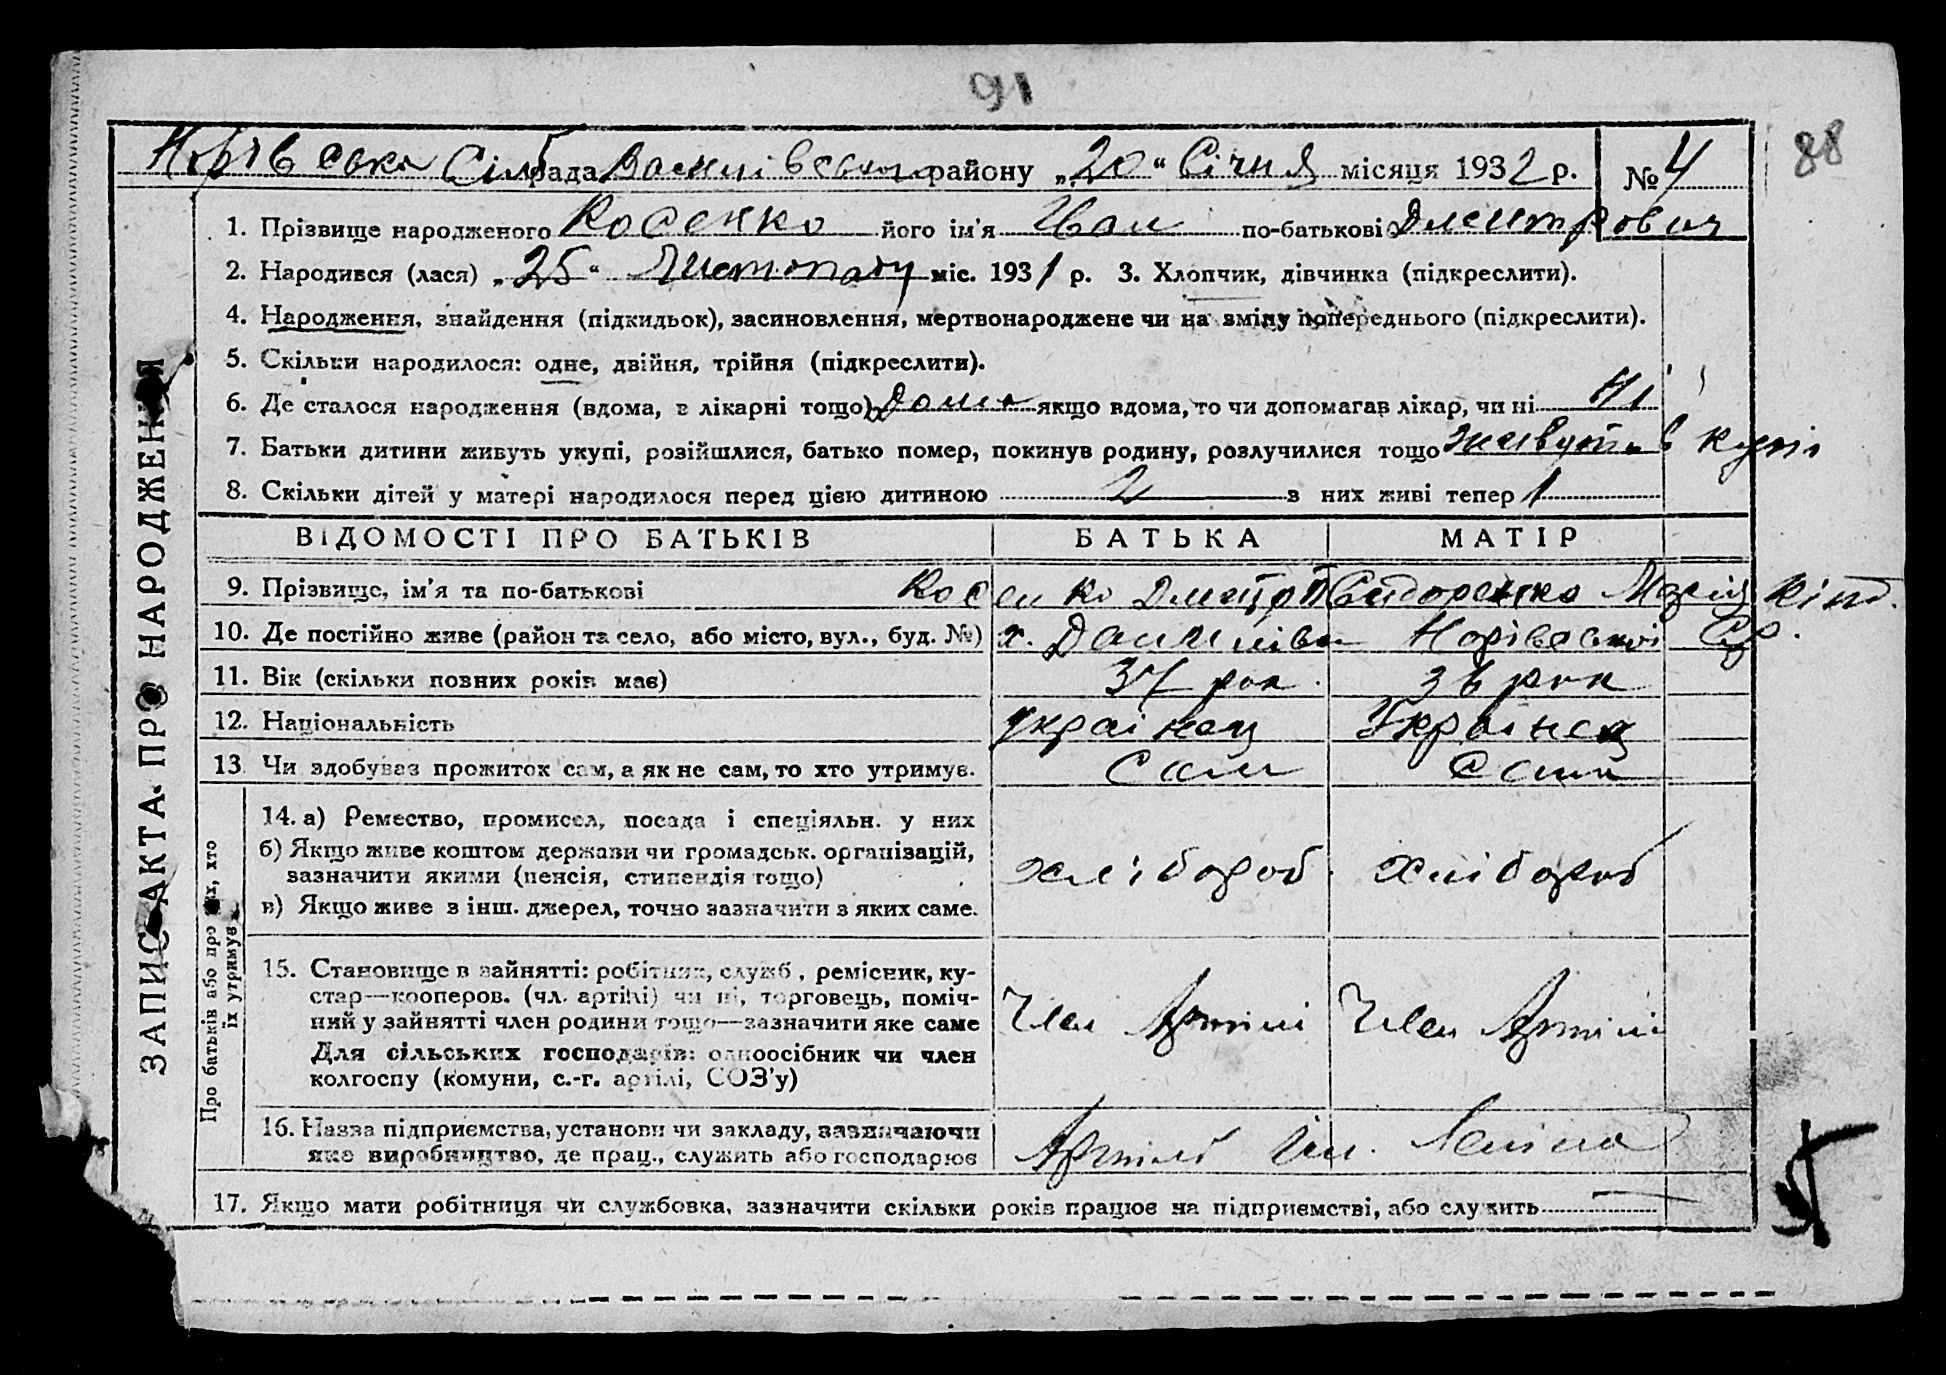 91
88
Сільрада району „20“ Січня місяця 1932 р. № 4
1. Прізвище народженого Косенко його ім'я Іван по-батькові Дмитрович
2. Народився (лася) „25“ Листопаду міс. 1931 р. 3. Хлопчик, дівчинка (підкреслити).
4. Народження, знайдення (підкидьок), засиновлення, мертвонароджене чи на зміну попереднього (підкреслити).
5. Скільки народилося: одне, двійня, трійня (підкреслити).
6. Де сталося народження (вдома, в лікарні тощо) Дома якщо вдома, то чи допомагав лікар, чи ні Ні
7. Батьки дитини живуть укупі, розійшлися, батько помер, покинув родину, розлучилися тощо живуть в купі
8. Скільки дітей у матері народилося перед цією дитиною 2 з них живі тепер 1
ЗАПИС АКТА ПРО НАРОДЖЕННЯ
ВІДОМОСТІ ПРО БАТЬКІВ БАТЬКА МАТІР
9. Прізвище, ім'я та по-батькові Косенко Дмитро Сидоренко Марія
10. Де постійно живе (район та село, або місто, вул., буд. №) х. Данилівка
11. Вік (скільки повних років має) 37 рок. 36 рок
12. Національність українец Українец
13. Чи здобуває прожиток сам, а як не сам, то хто утримує. Сам Сама
Про батьків або про тих, хто їх утримує
14. а) Ремество, промисел, посада і спеціяльн. у них
б) Якщо живе коштом держави чи громадськ. організацій,
зазначити якими (пенсія, стипендія тощо) хлібороб хлібороб
в) Якщо живе з інш. джерел, точно зазначити з яких саме.
15. Становище в зайнятті: робітник, служб., ремісник, ку-
стар—кооперов. (чл. артілі) чи ні, торговець, поміч-
ний у зайнятті член родини тощо—зазначити яке саме Член Артілі Член Артілі
Для сільських господарів: одноосібник чи член
колгоспу (комуни, с.-г. артілі, СОЗ'у)
16. Назва підприємства, установи чи закладу, зазначаючи
яке виробництво, де прац., служить або господарює Артіль Ім. Леніна
17. Якщо мати робітниця чи службовка, зазначити скільки років працює на підприємстві, або служить